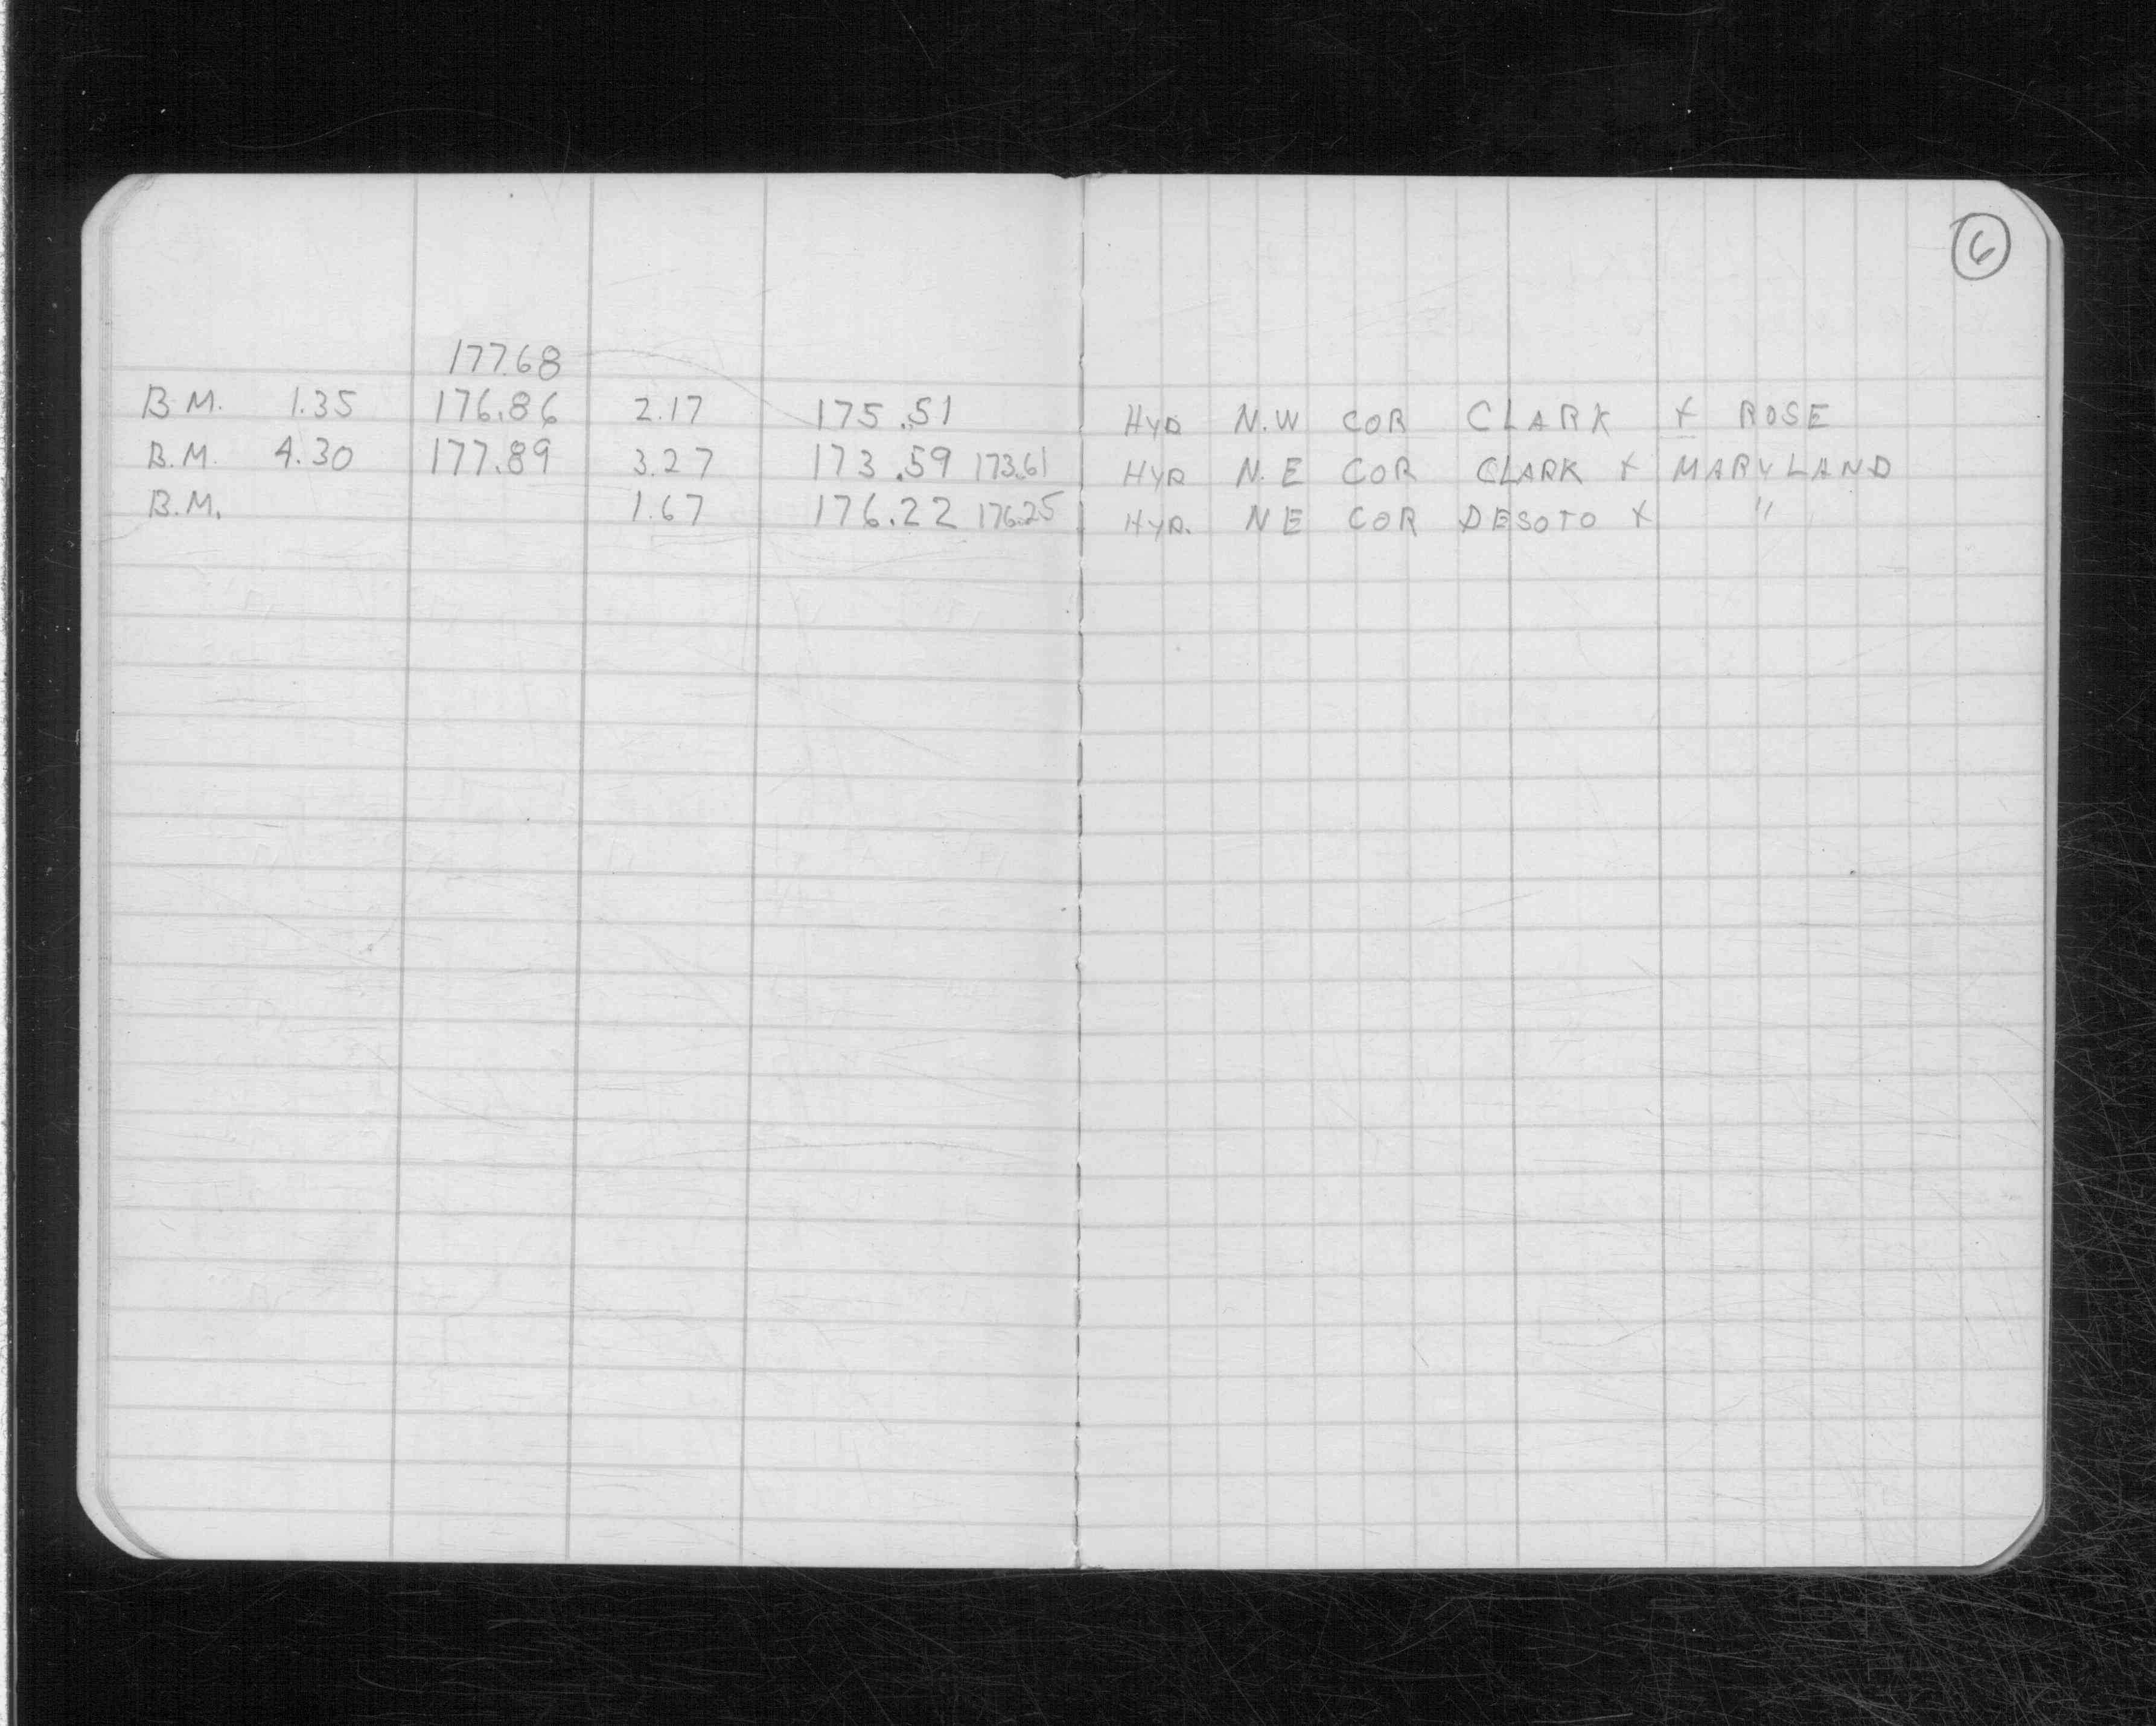 6
177.68
B.M. 1.35 176.86 2.17 175.51 HYD N.W COR CLARK + ROSE
B.M. 4.30 177.89 3.27 173.59 173.61 HYD N.E COR CLARK + MARYLAND
B.M. 1.67 176.22 176.25 HYD. NE COR DESOTO + "